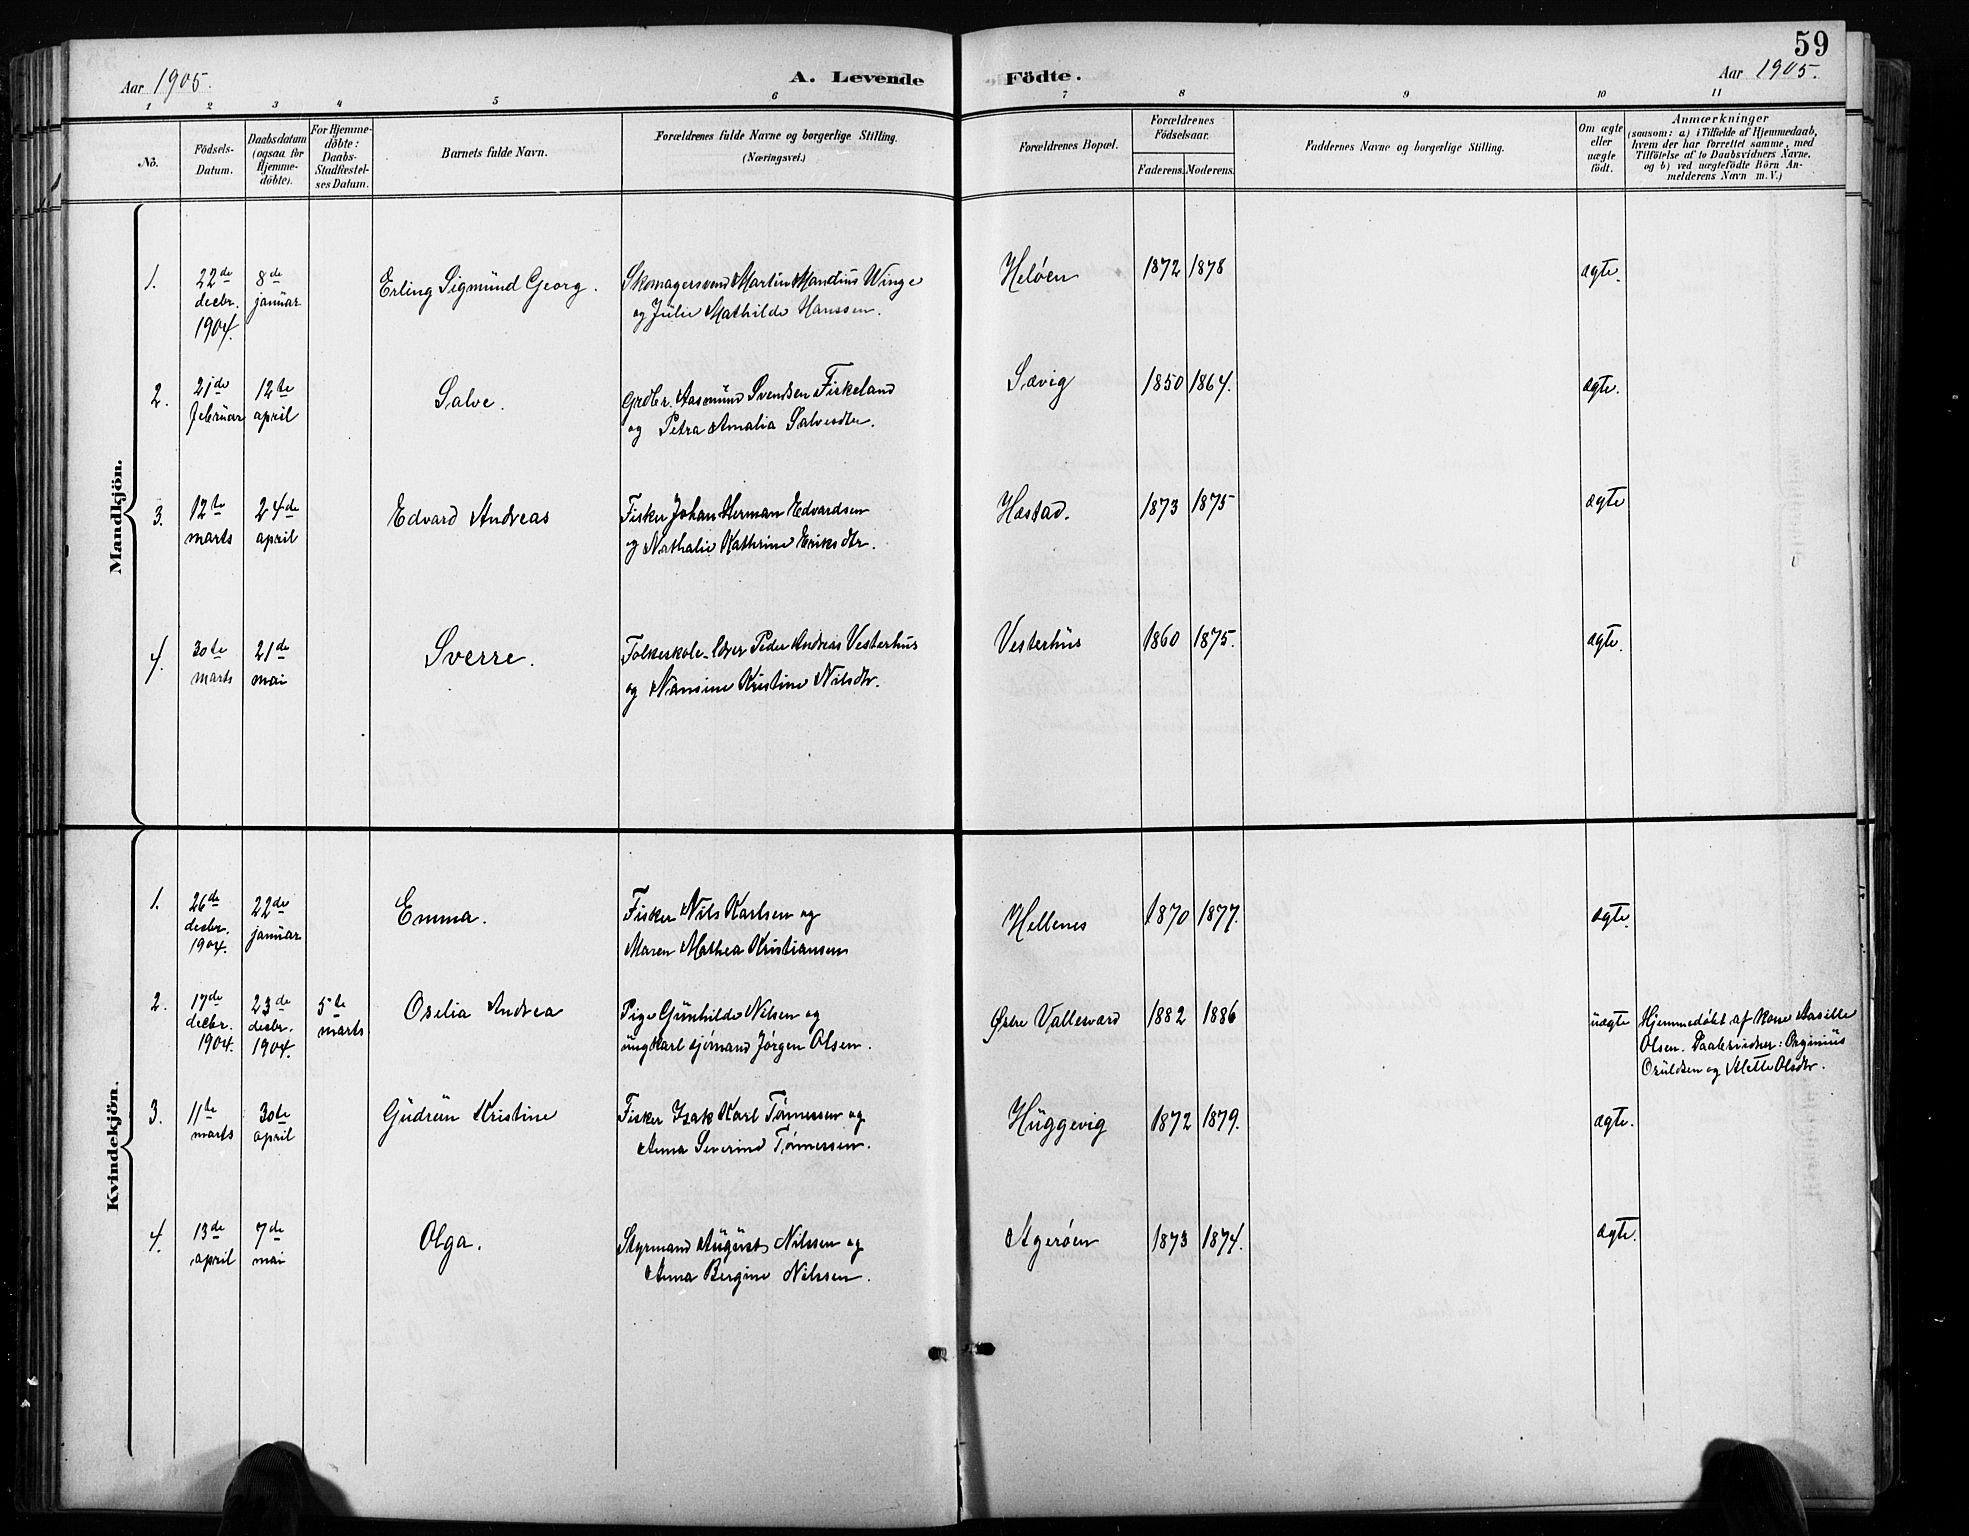 59
Aar 1905.
A. Levende Födte.
Aar 1905.
1 2 3 4 5 6 7 8 9 10 11
No.
Födsels-Datum.
Daabsdatum (ogsaa for Hjemme-döbte).
For Hjemme-döbte: Daabs-Stadfæstel-ses Datum.
Barnets fulde Navn.
Forældrenes fulde Navne og borgerlige Stilling.
(Næringsvei.)
Forældrenes Bopæl.
Forældrenes Födselsaar.
Faderens. Moderens.
Faddernes Navne og borgerlige Stilling.
Om ægte eller uægte födt.
Anmærkninger
(saasom: a) i Tilfælde af Hjemmedaab,
hvem der har forrettet samme, med
Tilföielse af to Daabsvidners Navne,
og b) ved uægtefödte Börn An-
melderens Navn m. V.)
Mandkjön.
1. 22de decbr. 1904. 8de januar Erling Sigmund Georg. Skomagersvend Martin Mandius Winge og Julie Mathilde Hanssen. Heløen 1872 1878 ægte.
2. 21de februar 12te april Salve. Grdbr. Aasmund Svendsen Fiskeland og Petra Amalia Salvesdtr. Sævig 1850 1864. ægte.
3. 12te marts 24de april Edvard Andreas Fisker Johan Herman Edvardsen og Nathalie Kathrine Eriksdtr. Hæstad. 1873 1875 ægte
4. 30te marts 21de mai Sverre. Folkeskole-lærer Peder Andreas Vesterhus og Nansine Kristine Nilsdtr. Vesterhus 1860 1875. ægte.
Kvindekjön.
1. 26de decbr. 1904. 22de januar Emma. Fisker Nils Karlsen og Maren Mathea Kristiansen Hellenes 1870 1877. ægte.
2. 17de decbr. 1904. 23de decbr. 1904. 5te marts Oselia Andrea Pige Gunhilde Nilsen og ungkarl sjømand Jørgen Olsen. Østre Vallesværd 1882 1886 uægte Hjemmedøbt af Kone Aasille Olsen. Daabsvidner: Osuldsen og Alette Olsdtr.
3. 11te marts 30te april Gudrun Kristine Fisker Isak Karl Tønnessen og Anna Severine Tønnessen. Huggevig 1872 1879. ægte.
4. 13de april 7de mai Olga. Styrmand August Nilssen og Anna Bergine Nilssen. Agerøen 1873 1874. ægte.